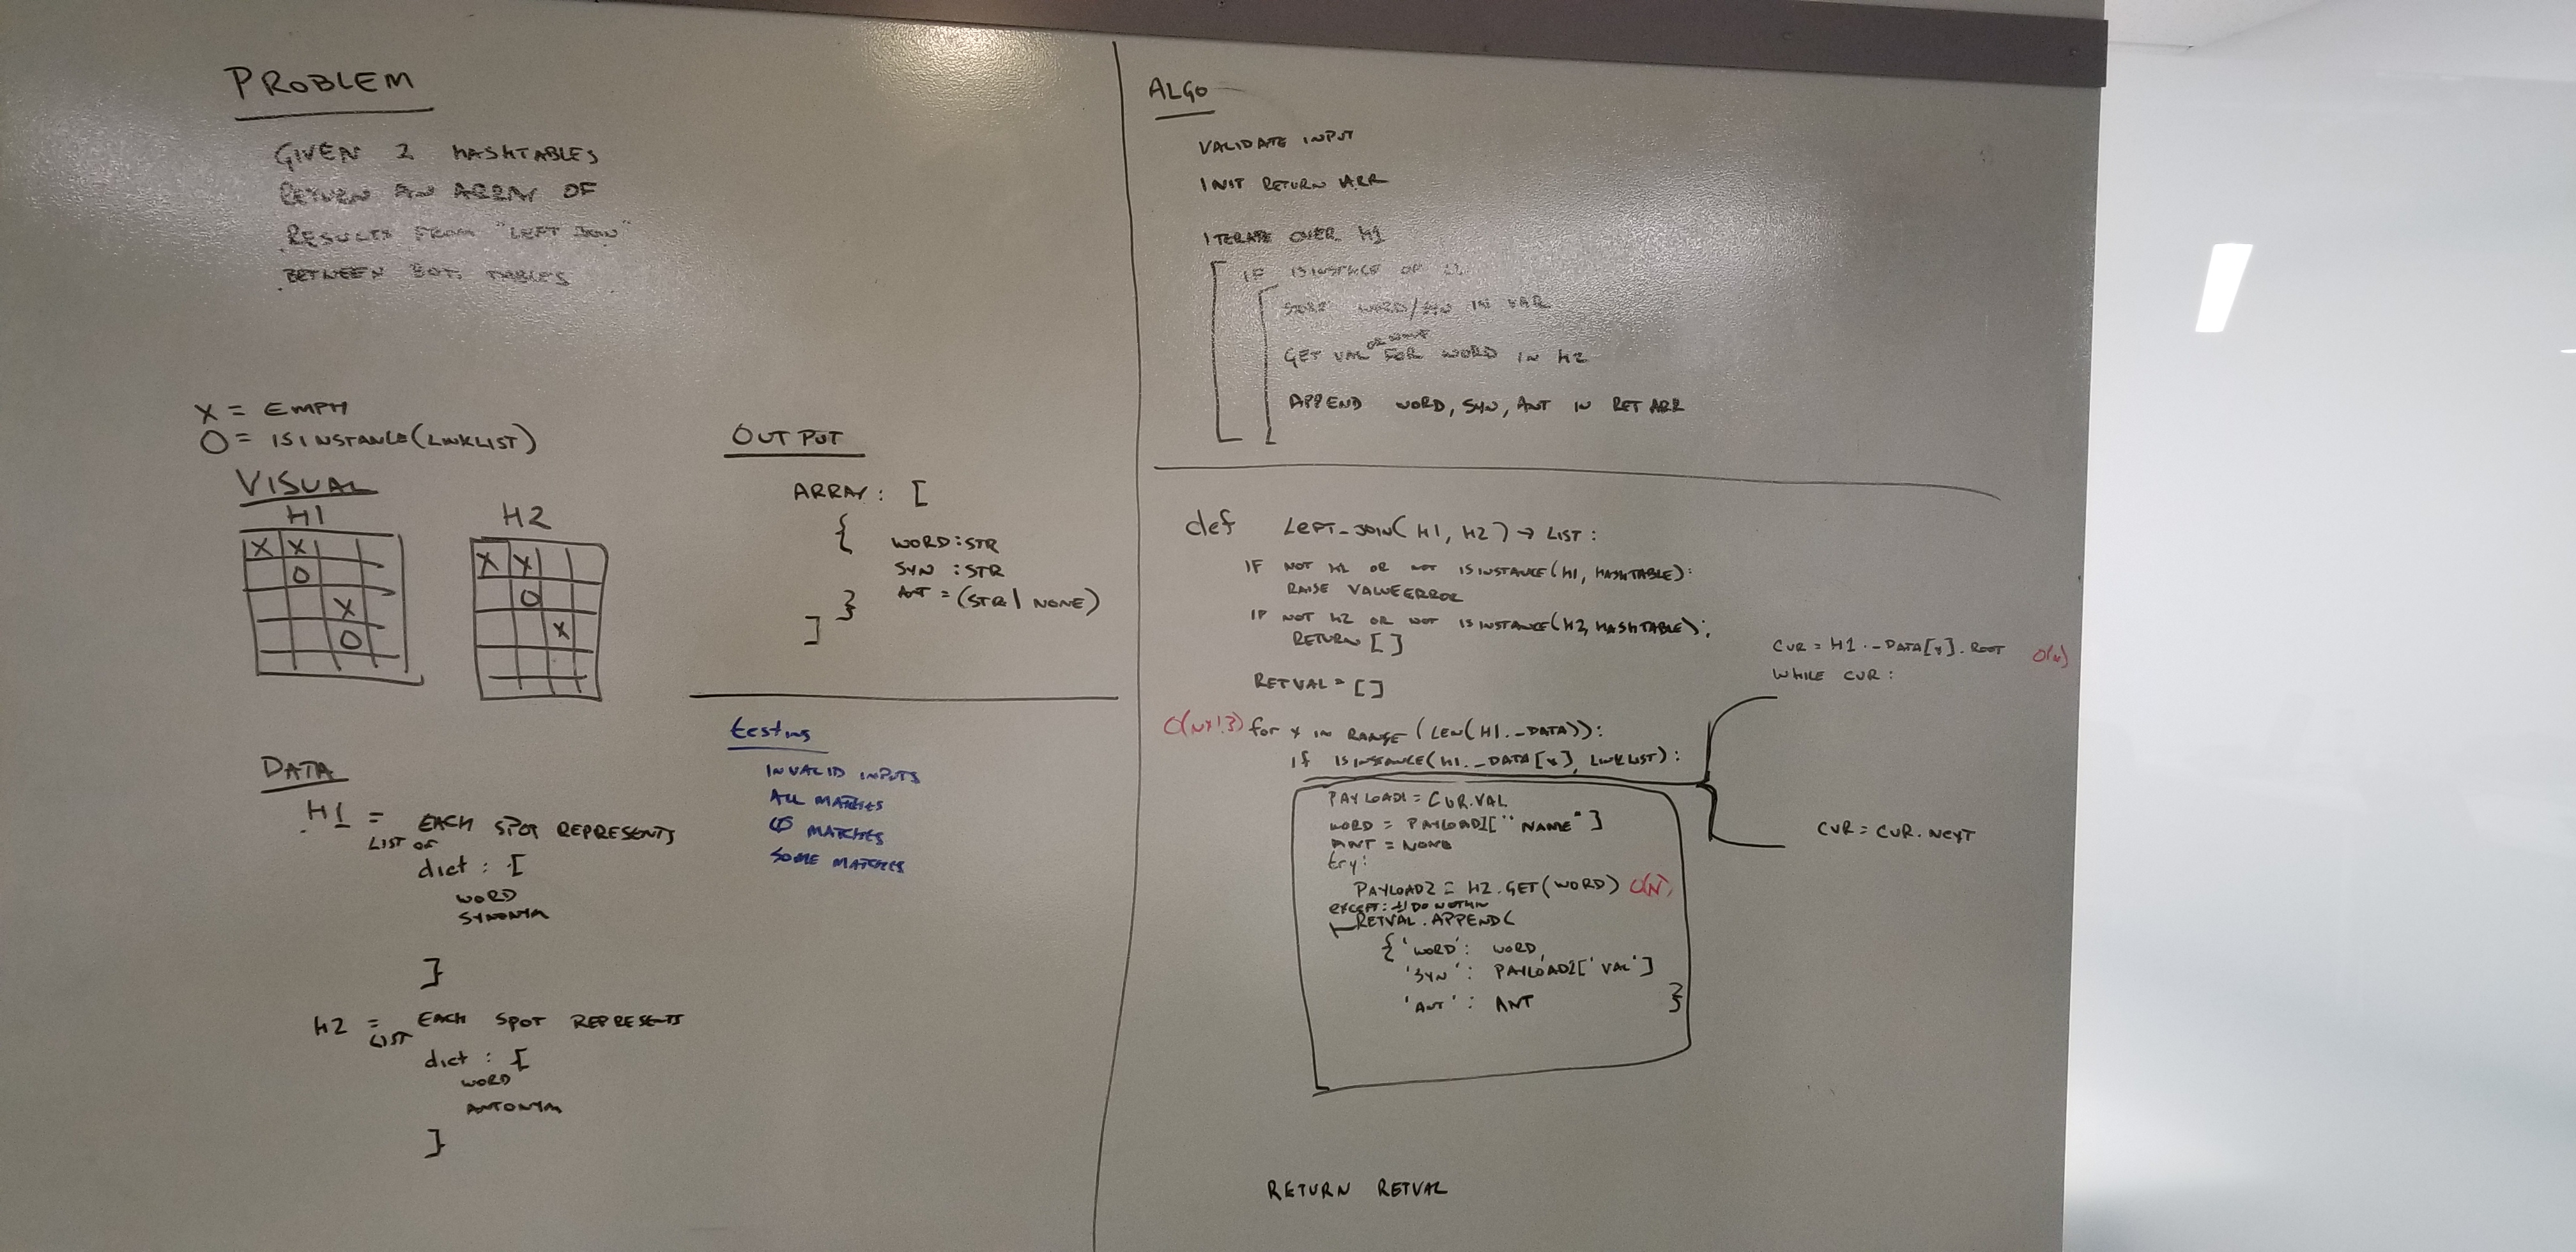 PROBLEM
GIVEN 2 HASHTABLES
RETURN AN ARRAY OF
RESULTS FROM "LEFT JOIN"
BETWEEN BOTH TABLES
X = EMPTY
O = ISINSTANCE(LINKLIST)
VISUAL
H1
H2
X X
O
X
O
X X
O
X
DATA
H1 = EACH SPOT REPRESENTS
LIST OF
dict : [
WORD
SYNONYM
]
H2 = EACH SPOT REPRESENTS
LIST
dict : [
WORD
ANTONYM
]
OUTPUT
ARRAY : [
{
WORD : STR
SYN : STR
ANT = (STR | NONE)
}
]
testing
INVALID INPUTS
ALL MATCHES
MATCHES
SOME MATCHES
ALGO
VALIDATE INPUT
INIT RETURN ARR
ITERATE OVER H1
IF ISINSTNCE OF LL
STORE WORD/SYN IN VAR
OR NONE
GET VAL FOR WORD IN H2
APPEND WORD, SYN, ANT IN RET ARR
def LEFT_JOIN(H1, H2) → LIST :
IF NOT H1 OR NOT ISINSTANCE(H1, HASHTABLE):
RAISE VALUEERROR
IF NOT H2 OR NOT ISINSTANCE(H2, HASHTABLE):
RETURN []
RETVAL = []
for x IN RANGE (LEN(H1._DATA)):
if ISINSTANCE(H1._DATA[x], LINKLIST):
CUR = H1._DATA[x].ROOT O(N)
WHILE CUR :
PAYLOAD1 = CUR.VAL
WORD = PAYLOAD1["NAME"]
ANT = NONE
try:
PAYLOAD2 = H2.GET(WORD) O(N)
EXCEPT: // DO NOTHIN
RETVAL.APPEND(
{'WORD': WORD,
'SYN': PAYLOAD2['VAL']
'ANT': ANT }
CUR = CUR.NEXT
RETURN RETVAL